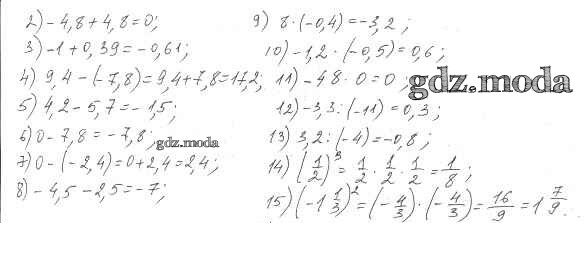 2) - 4,8 + 4,8 = 0;
3) -1 + 0,39 = - 0,61;
4) 9,4 - (-7,8) = 9,4 + 7,8 = 17,2;
5) 4,2 - 5,7 = - 1,5;
6) 0 - 7,8 = - 7,8;
gdz.moda
7) 0 - (- 2,4) = 0 + 2,4 = 2,4;
8) - 4,5 - 2,5 = - 7;
9) 8 · (-0,4) = -3,2;
10) -1,2 · (-0,5) = 0,6;
11) -48 · 0 = 0;
gdz.moda
12) -3,3 : (-11) = 0,3;
13) 3,2 : (-4) = -0,8;
14) (1/2)³ = 1/2 · 1/2 · 1/2 = 1/8;
15) (-1 1/3)² = (-4/3) · (-4/3) = 16/9 = 1 7/9.